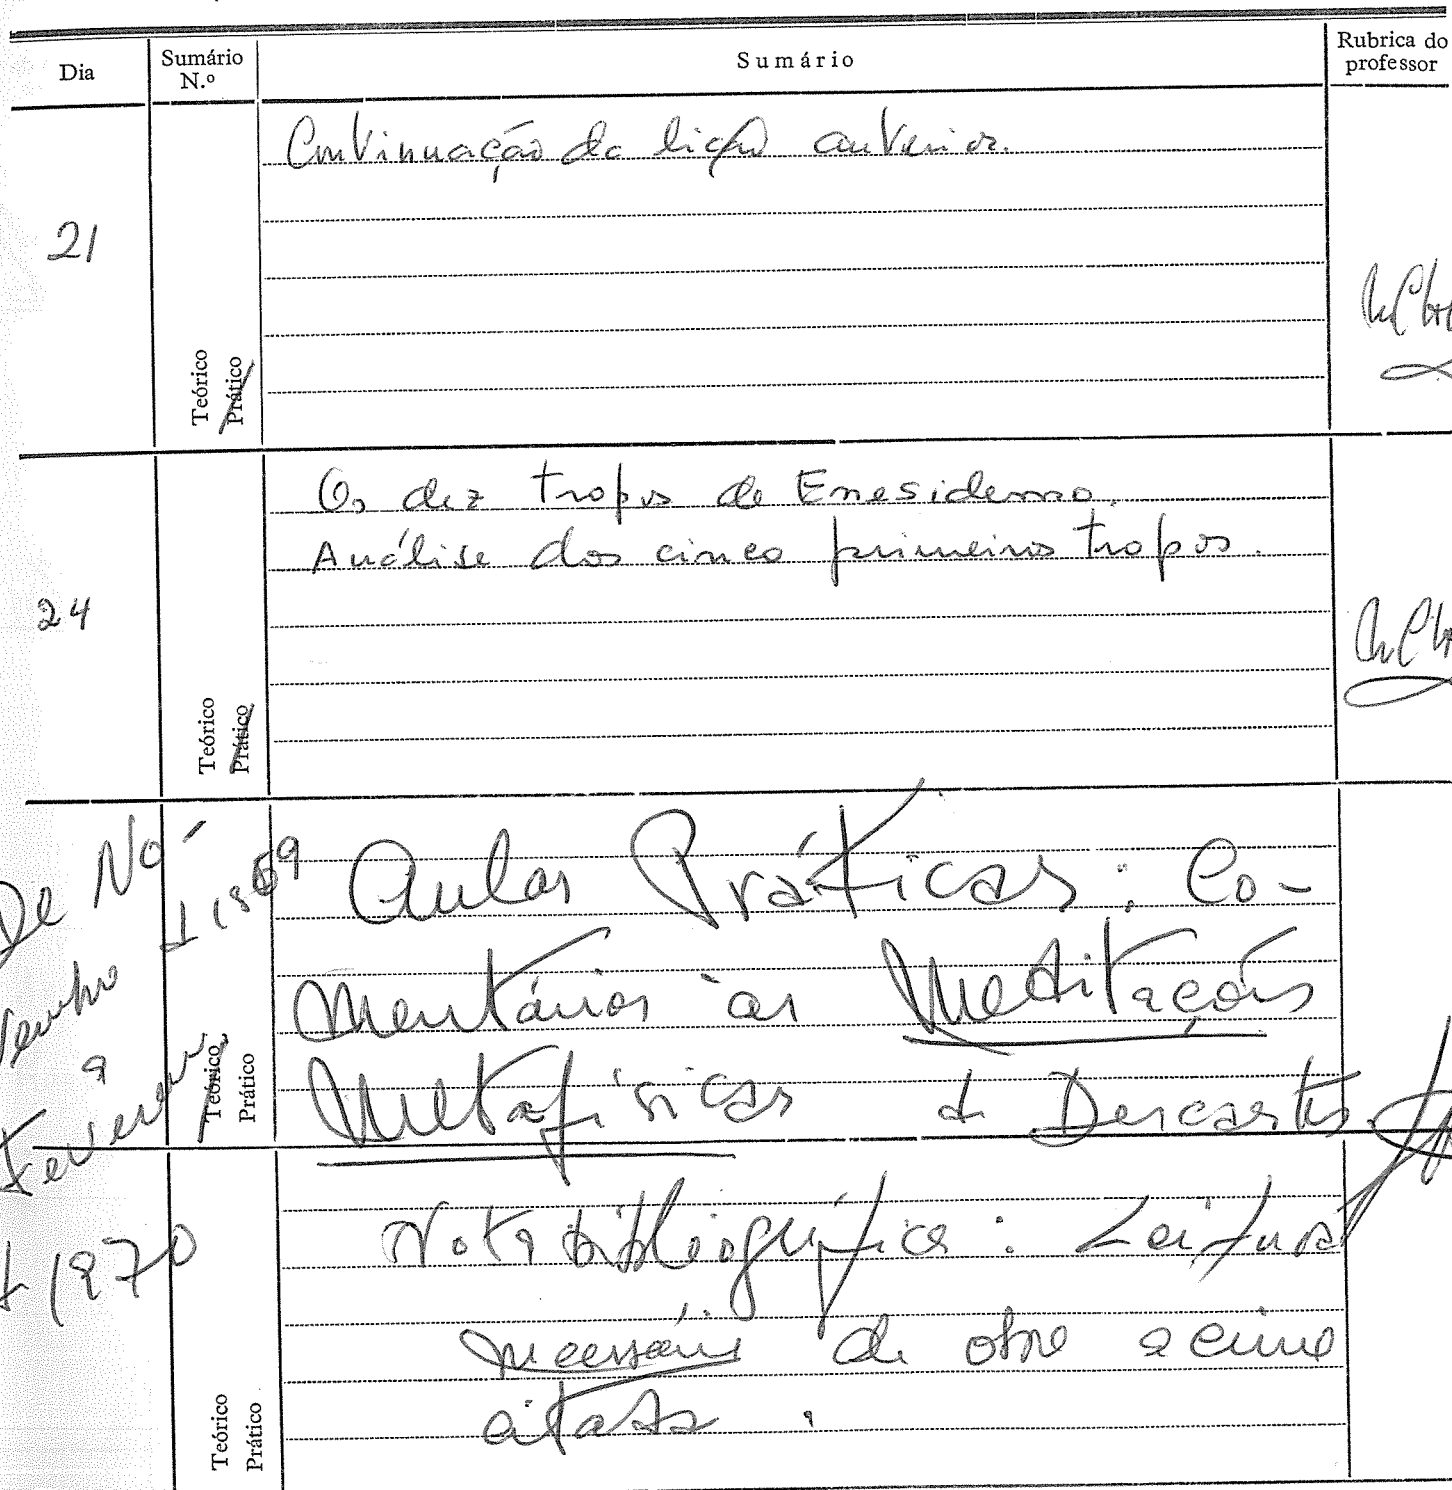 Dia
Sumário
N.º
Sumário
Rubrica do
professor
21
Teórico
Prático
Continuação da lição anterior.
24
Teórico
Prático
Os dez tropos de Enesidemo.
Análise dos cinco primeiros tropos.
De No-
vembro
de 1969
a
Fevereiro
de 1970
Teórico
Prático
Aulas Práticas: Co-
mentários às Meditações
Metafísicas de Descartes.
Teórico
Prático
Nota bibliográfica: Leitura
necessária da obra acima
citada.